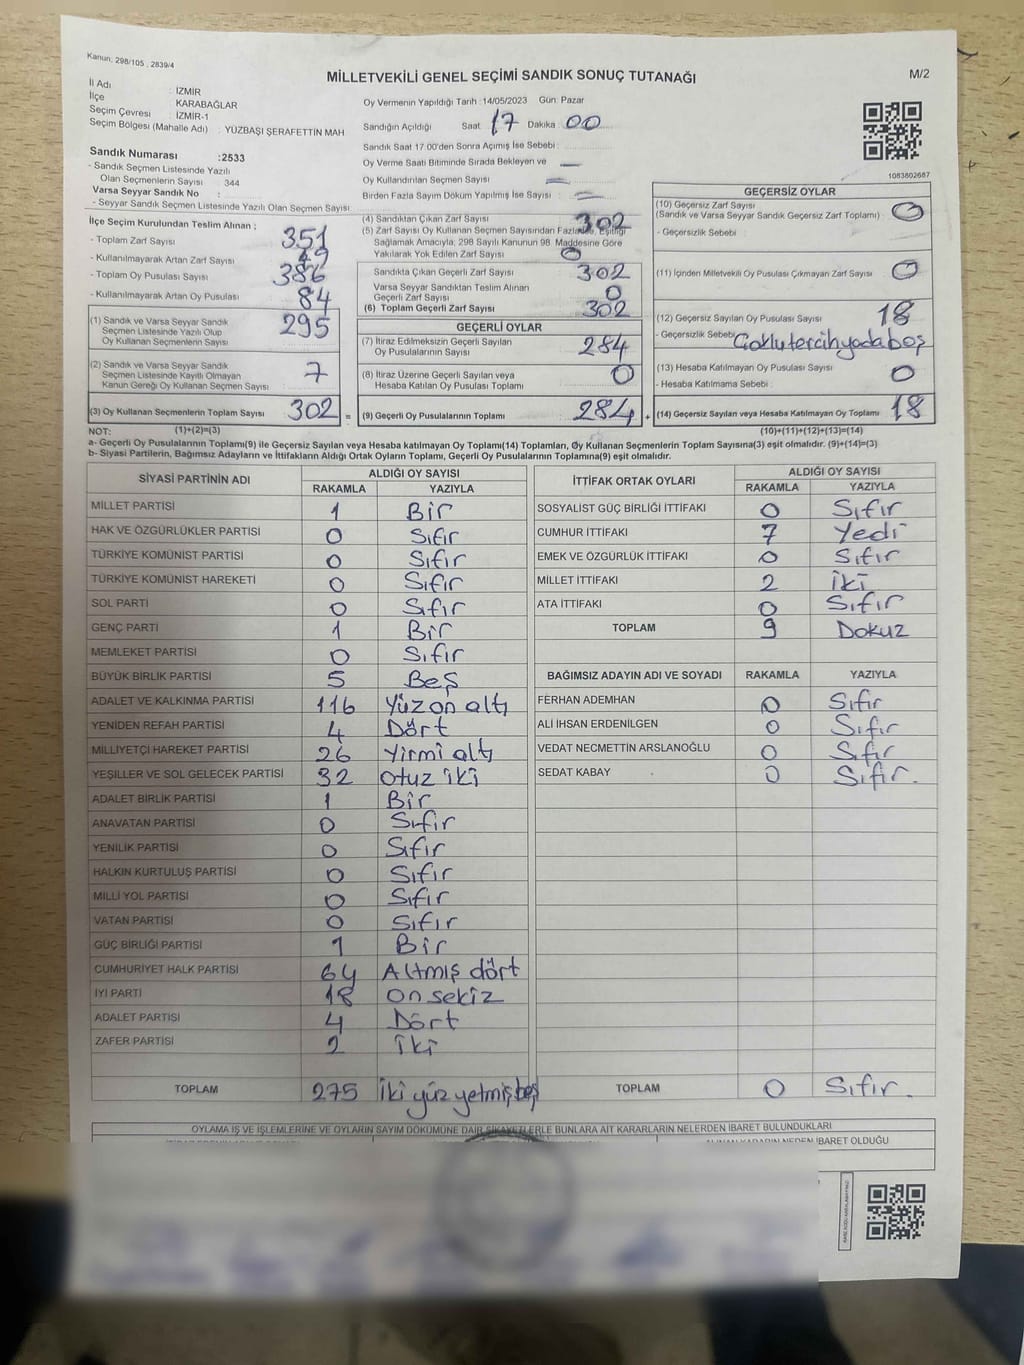 Kanun, 298/105 , 2839/4
MİLLETVEKİLİ GENEL SEÇİMİ SANDIK SONUÇ TUTANAĞI
M/2
İl Adı : İZMİR
İlçe KARABAĞLAR
Seçim Çevresi : İZMİR-1
Seçim Bölgesi (Mahalle Adı) : YÜZBAŞI ŞERAFETTİN MAH
Sandık Numarası :2533
- Sandık Seçmen Listesinde Yazılı
Olan Seçmenlerin Sayısı : 344
Varsa Seyyar Sandık No :
- Seyyar Sandık Seçmen Listesinde Yazılı Olan Seçmen Sayısı:
Oy Vermenin Yapıldığı Tarih :14/05/2023 Gün: Pazar
Sandığın Açıldığı Saat 17 Dakika 00
Sandık Saat 17:00'den Sonra Açımış İse Sebebi :
Oy Verme Saati Bitiminde Sırada Bekleyen ve —
Oy Kullandırılan Seçmen Sayısı :
Birden Fazla Sayım Döküm Yapılmış İse Sayısı :
1083802687
İlçe Seçim Kurulundan Teslim Alınan ;
- Toplam Zarf Sayısı 351
- Kullanılmayarak Artan Zarf Sayısı 49
- Toplam Oy Pusulası Sayısı 386
- Kullanılmayarak Artan Oy Pusulası 84
(1) Sandık ve Varsa Seyyar Sandık
Seçmen Listesinde Yazılı Olup
Oy Kullanan Seçmenlerin Sayısı 295
(2) Sandık ve Varsa Seyyar Sandık
Seçmen Listesinde Kayıtlı Olmayan
Kanun Gereği Oy Kullanan Seçmen Sayısı 7
(3) Oy Kullanan Seçmenlerin Toplam Sayısı 302 =
(4) Sandıktan Çıkan Zarf Sayısı 302
(5) Zarf Sayısı Oy Kullanan Seçmen Sayısından Fazla ise, Eşitliği
Sağlamak Amacıyla, 298 Sayılı Kanunun 98. Maddesine Göre
Yakılarak Yok Edilen Zarf Sayısı 0
Sandıkta Çıkan Geçerli Zarf Sayısı 302
Varsa Seyyar Sandıktan Teslim Alınan
Geçerli Zarf Sayısı 0
(6) Toplam Geçerli Zarf Sayısı 302
GEÇERLİ OYLAR
(7) İtiraz Edilmeksizin Geçerli Sayılan
Oy Pusulalarının Sayısı 284
(8) İtiraz Üzerine Geçerli Sayılan veya
Hesaba Katılan Oy Pusulası Toplamı 0
(9) Geçerli Oy Pusulalarının Toplamı 284 +
GEÇERSİZ OYLAR
(10) Geçersiz Zarf Sayısı
(Sandık ve Varsa Seyyar Sandık Geçersiz Zarf Toplamı) 0
- Geçersizlik Sebebi :
(11) İçinden Milletvekili Oy Pusulası Çıkmayan Zarf Sayısı 0
(12) Geçersiz Sayılan Oy Pusulası Sayısı 18
- Geçersizlik Sebebi Çoklu tercih yada boş
(13) Hesaba Katılmayan Oy Pusulası Sayısı 0
- Hesaba Katılmama Sebebi :
(14) Geçersiz Sayılan veya Hesaba Katılmayan Oy Toplamı 18
NOT: (1)+(2)=(3) (10)+(11)+(12)+(13)=(14)
a- Geçerli Oy Pusulalarının Toplamı(9) ile Geçersiz Sayılan veya Hesaba katılmayan Oy Toplamı(14) Toplamları, Oy Kullanan Seçmenlerin Toplam Sayısına(3) eşit olmalıdır. (9)+(14)=(3)
b- Siyasi Partilerin, Bağımsız Adayların ve İttifakların Aldığı Ortak Oyların Toplamı, Geçerli Oy Pusulalarının Toplamına(9) eşit olmalıdır.
SİYASİ PARTİNİN ADI ALDIĞI OY SAYISI
RAKAMLA YAZIYLA
MİLLET PARTİSİ 1 Bir
HAK VE ÖZGÜRLÜKLER PARTİSİ 0 Sıfır
TÜRKİYE KOMÜNİST PARTİSİ 0 Sıfır
TÜRKİYE KOMÜNİST HAREKETİ 0 Sıfır
SOL PARTİ 0 Sıfır
GENÇ PARTİ 1 Bir
MEMLEKET PARTİSİ 0 Sıfır
BÜYÜK BİRLİK PARTİSİ 5 Beş
ADALET VE KALKINMA PARTİSİ 116 Yüz on altı
YENİDEN REFAH PARTİSİ 4 Dört
MİLLİYETÇİ HAREKET PARTİSİ 26 Yirmi altı
YEŞİLLER VE SOL GELECEK PARTİSİ 32 Otuz iki
ADALET BİRLİK PARTİSİ 1 Bir
ANAVATAN PARTİSİ 0 Sıfır
YENİLİK PARTİSİ 0 Sıfır
HALKIN KURTULUŞ PARTİSİ 0 Sıfır
MİLLİ YOL PARTİSİ 0 Sıfır
VATAN PARTİSİ 0 Sıfır
GÜÇ BİRLİĞİ PARTİSİ 1 Bir
CUMHURİYET HALK PARTİSİ 64 Altmış dört
İYİ PARTİ 18 On sekiz
ADALET PARTİSİ 4 Dört
ZAFER PARTİSİ 2 İki
TOPLAM 275 İki yüz yetmiş beş
İTTİFAK ORTAK OYLARI ALDIĞI OY SAYISI
RAKAMLA YAZIYLA
SOSYALİST GÜÇ BİRLİĞİ İTTİFAKI 0 Sıfır
CUMHUR İTTİFAKI 7 Yedi
EMEK VE ÖZGÜRLÜK İTTİFAKI 0 Sıfır
MİLLET İTTİFAKI 2 iki
ATA İTTİFAKI 0 Sıfır
TOPLAM 9 Dokuz
BAĞIMSIZ ADAYIN ADI VE SOYADI RAKAMLA YAZIYLA
FERHAN ADEMHAN 0 Sıfır
ALİ İHSAN ERDENİLGEN 0 Sıfır
VEDAT NECMETTİN ARSLANOĞLU 0 Sıfır
SEDAT KABAY 0 Sıfır.
TOPLAM 0 Sıfır.
OYLAMA İŞ VE İŞLEMLERİNE VE OYLARIN SAYIM DÖKÜMÜNE DAİR ŞİKAYETLERLE BUNLARA AİT KARARLARIN NELERDEN İBARET BULUNDUKLARI
ALINAN KARARIN NEDEN İBARET OLDUĞU